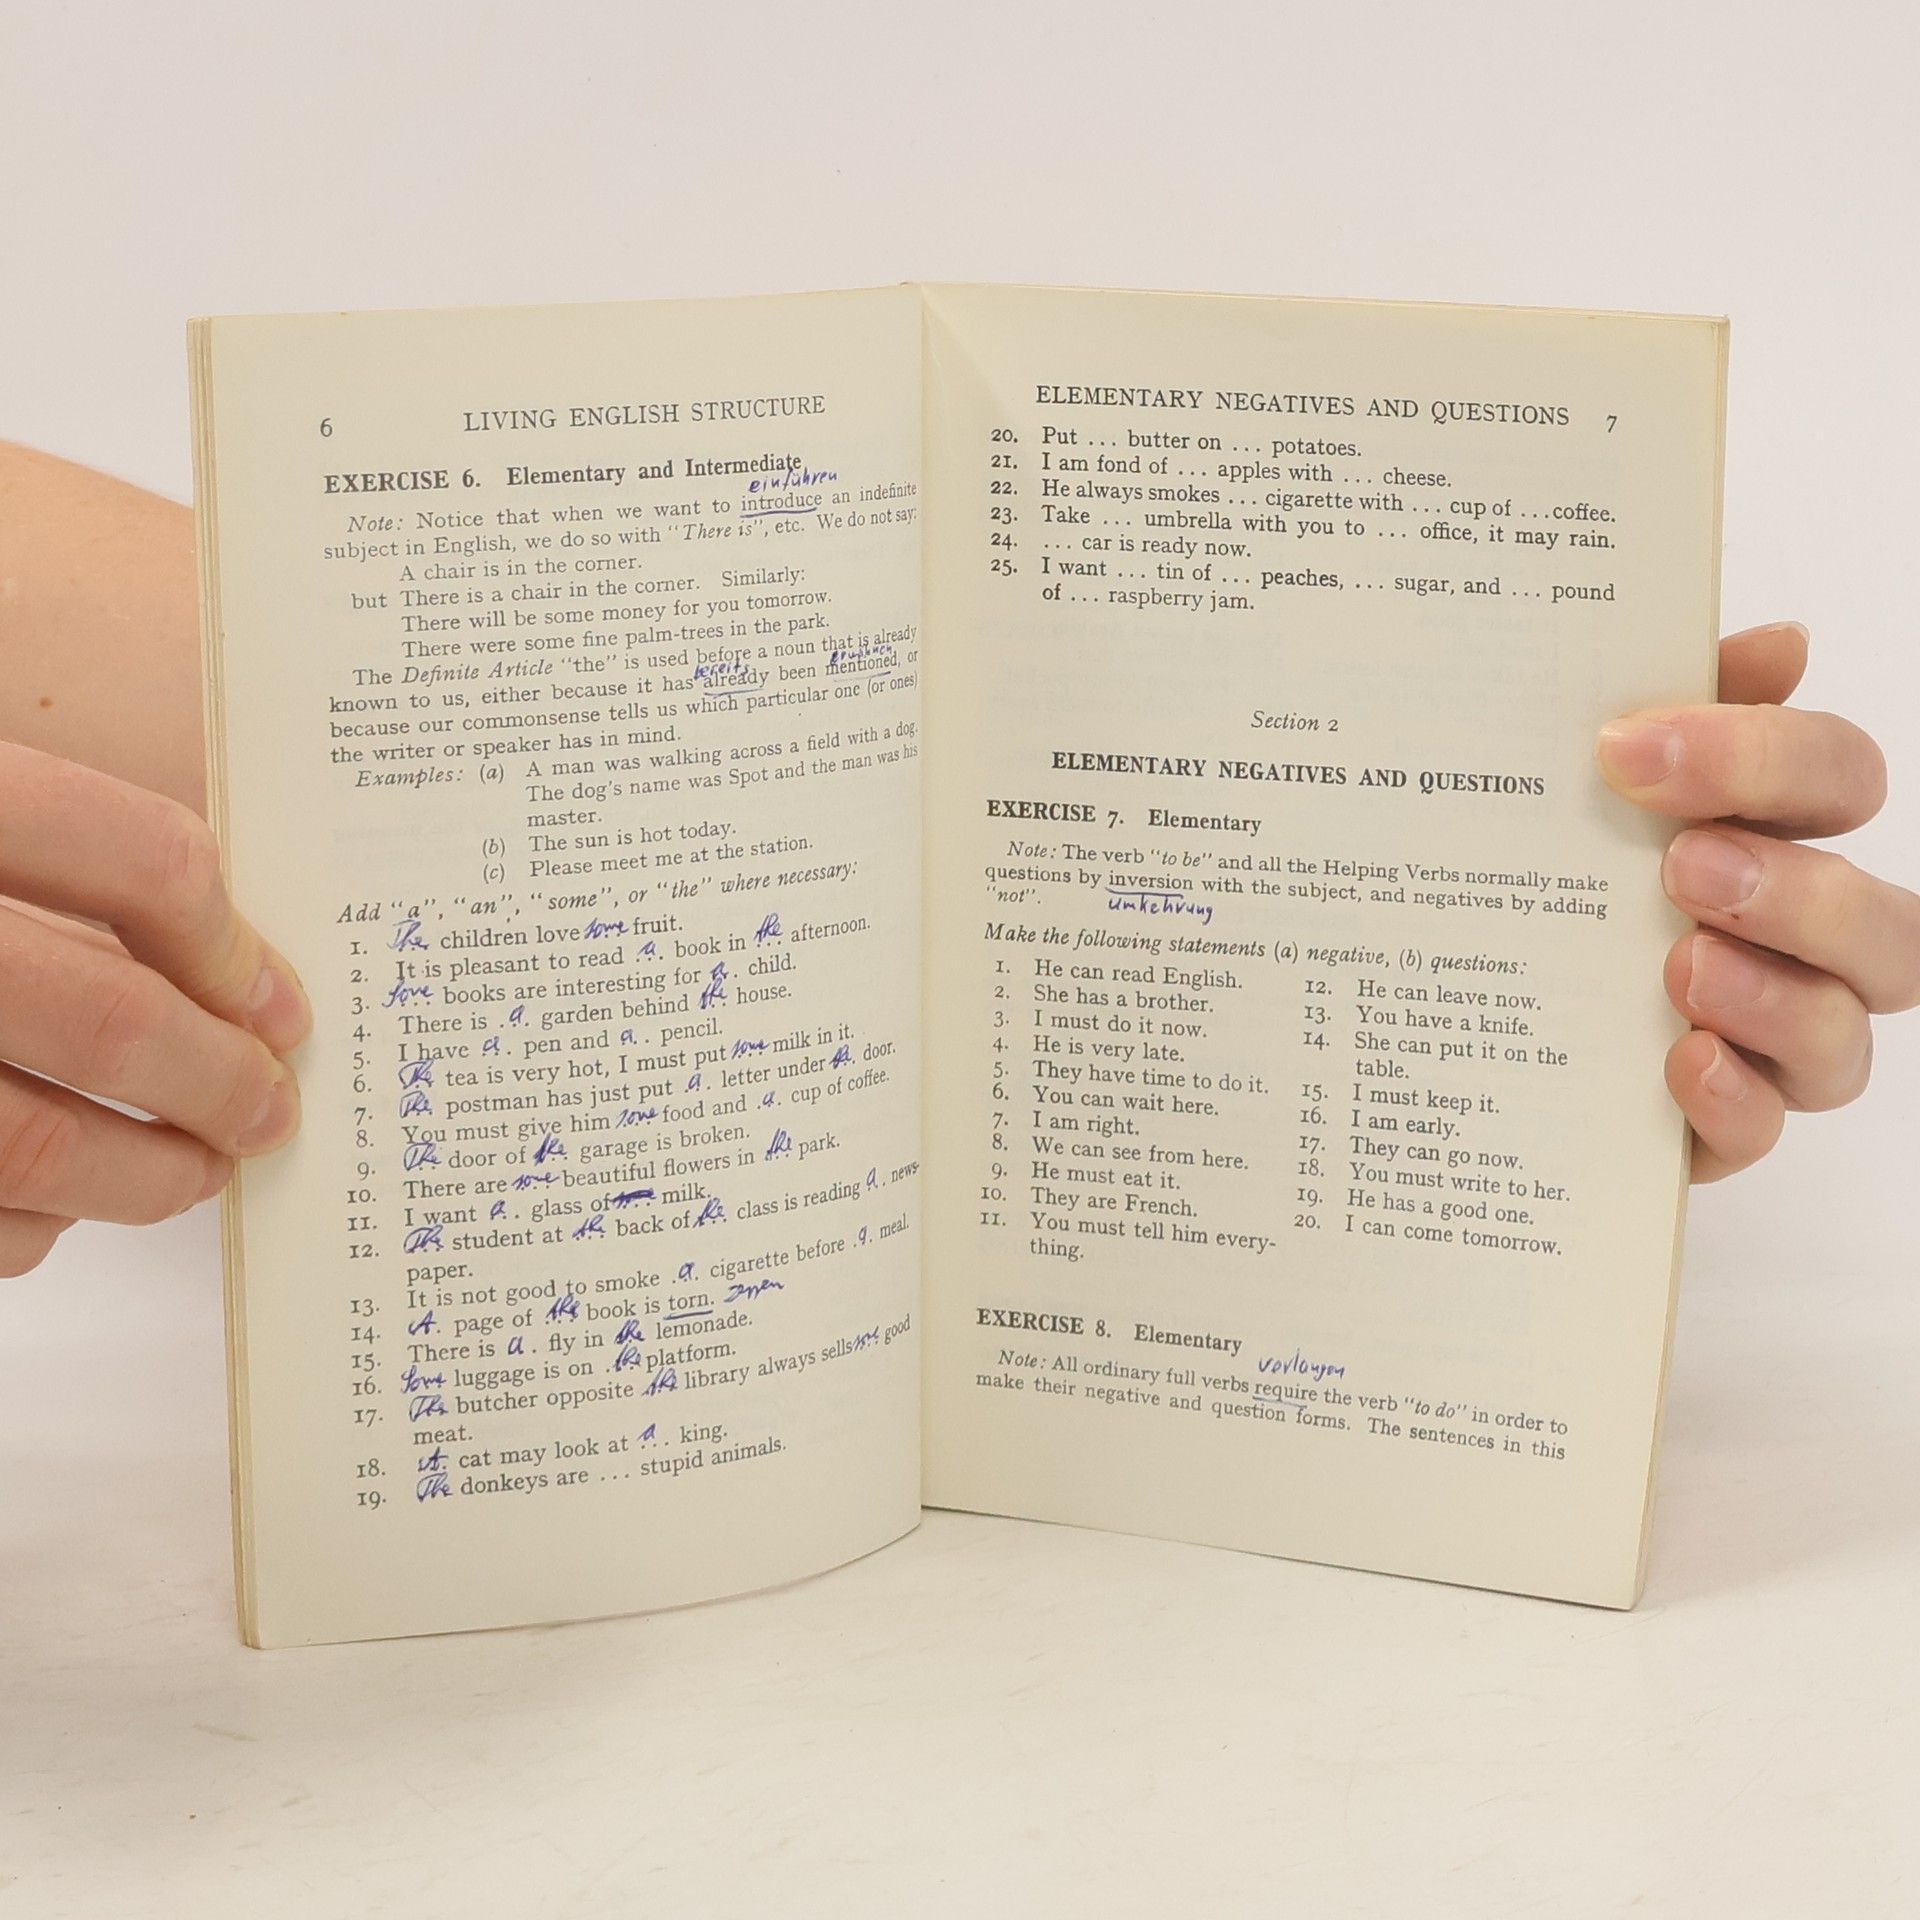 6 LIVING ENGLISH STRUCTURE
EXERCISE 6. Elementary and Intermediate
einführen
Note: Notice that when we want to introduce an indefinite
subject in English, we do so with "There is", etc. We do not say:
A chair is in the corner.
but There is a chair in the corner. Similarly:
There will be some money for you tomorrow.
There were some fine palm-trees in the park.
The Definite Article "the" is used before a noun that is already
bereits erwähnen
known to us, either because it has already been mentioned, or
because our commonsense tells us which particular one (or ones)
the writer or speaker has in mind.
Examples: (a) A man was walking across a field with a dog.
The dog's name was Spot and the man was his
master.
(b) The sun is hot today.
(c) Please meet me at the station.
Add "a", "an", "some", or "the" where necessary:
1. The children love some fruit.
2. It is pleasant to read a book in the afternoon.
3. Some books are interesting for a child.
4. There is a garden behind the house.
5. I have a pen and a pencil.
6. The tea is very hot, I must put some milk in it.
7. The postman has just put a letter under the door.
8. You must give him some food and a cup of coffee.
9. The door of the garage is broken.
10. There are some beautiful flowers in the park.
11. I want a glass of milk.
12. The student at the back of the class is reading a news-
paper.
13. It is not good to smoke a cigarette before a meal.
14. A page of the book is torn.
15. There is a fly in the lemonade.
16. Some luggage is on the platform.
17. The butcher opposite the library always sells some good
meat.
18. A cat may look at a king.
19. The donkeys are ... stupid animals.
ELEMENTARY NEGATIVES AND QUESTIONS 7
20. Put ... butter on ... potatoes.
21. I am fond of ... apples with ... cheese.
22. He always smokes ... cigarette with ... cup of ...coffee.
23. Take ... umbrella with you to ... office, it may rain.
24. ... car is ready now.
25. I want ... tin of ... peaches, ... sugar, and ... pound
of ... raspberry jam.
Section 2
ELEMENTARY NEGATIVES AND QUESTIONS
EXERCISE 7. Elementary
Note: The verb "to be" and all the Helping Verbs normally make
questions by inversion with the subject, and negatives by adding
"not".
Umkehrung
Make the following statements (a) negative, (b) questions:
1. He can read English.
2. She has a brother.
3. I must do it now.
4. He is very late.
5. They have time to do it.
6. You can wait here.
7. I am right.
8. We can see from here.
9. He must eat it.
10. They are French.
11. You must tell him every-
thing.
12. He can leave now.
13. You have a knife.
14. She can put it on the
table.
15. I must keep it.
16. I am early.
17. They can go now.
18. You must write to her.
19. He has a good one.
20. I can come tomorrow.
EXERCISE 8. Elementary
verlangen
Note: All ordinary full verbs require the verb "to do" in order to
make their negative and question forms. The sentences in this